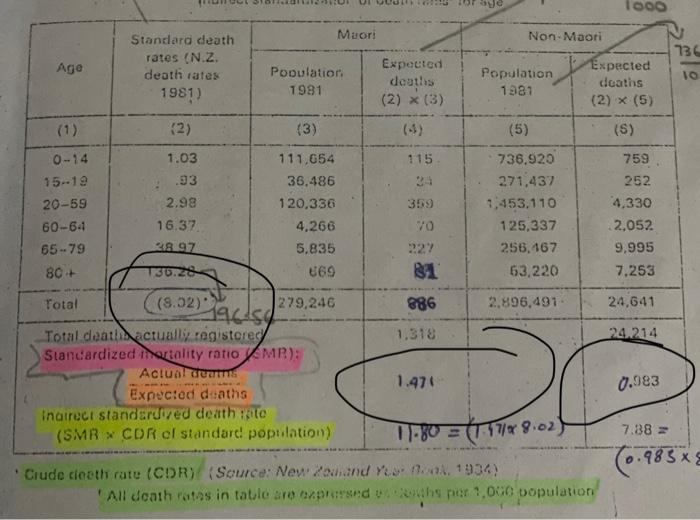 Indirect standardization of death rates for age
1000
Age
Standard death rates (N.Z. death rates 1981)
Maori
Non-Maori
736
10
Population 1981
Expected deaths (2) × (3)
Population 1981
Expected deaths (2) × (5)
(1) (2) (3) (4) (5) (6)
0-14 1.03 111,654 115 736,920 759
15-19 .93 36,486 34 271,437 252
20-59 2.98 120,336 359 1,453,110 4,330
60-64 16.37 4,266 70 125,337 2,052
65-79 38.97 5,835 227 256,467 9,995
80+ 136.28 669 91 63,220 7,253
Total (8.02)* 279,246 886 2,896,491 24,641
196.56
Total deaths actually registered 1,318 24,214
Standardized mortality ratio (SMR):
Actual deaths
Expected deaths
1.471 0.983
Indirect standardized death rate
(SMR × CDR of standard population) 11.80 = (1.471 × 8.02) 7.88 =
(0.983 ×
* Crude death rate (CDR) (Source: New Zealand Year Book, 1984)
All death rates in table are expressed as deaths per 1,000 population